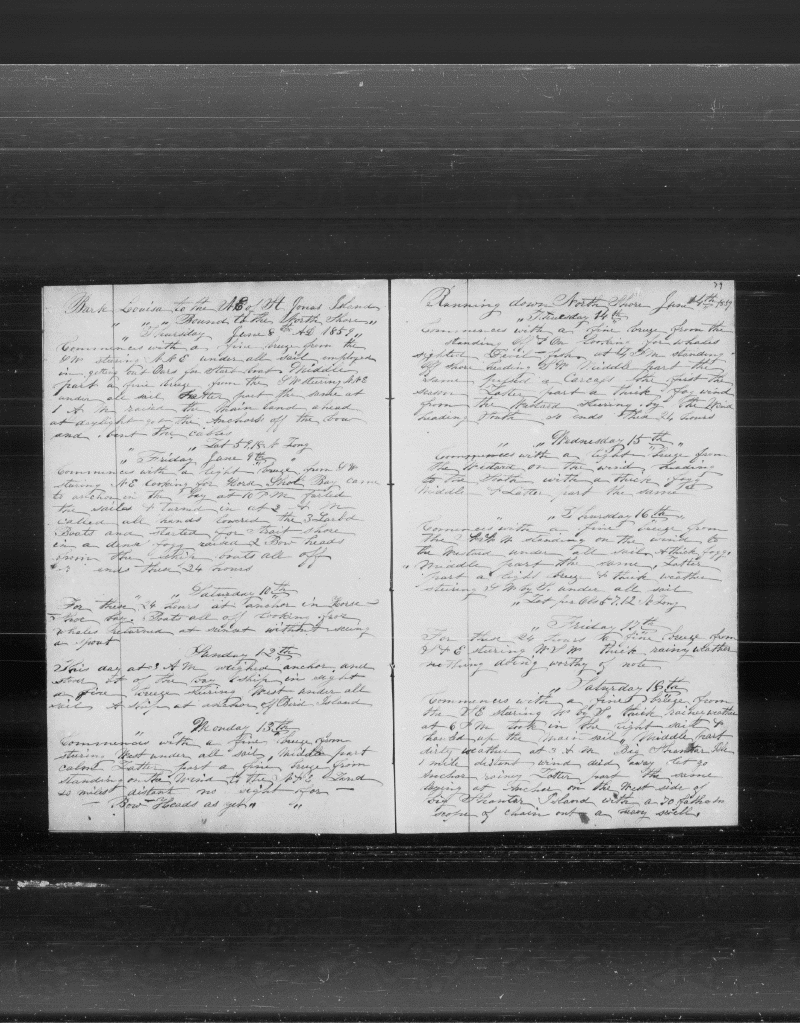 Bark Louisa to the NE of St Jonas Island
" " " Bound to the North Shore "
" " Thursday June 8th AD 1859 "
Commences with a fine breeze from the
SW stering NNE under all sail employed
in geting out Oars for Start boat Middle
part a fine breeze from the SW stering NNE
under all sail Latter part the same at
1 A M raised the main land ahead
at daylight got the Anchors off the bow
and bent the cables
" " Lat 59.18 & Long
" " Friday June 9th "
Commences with a light breeze from SW
stering NE looking for Horse Shoe Bay came
to anchor in the Bay at 10 P M furled
the sailes & turned in at 2 A M
called all hands lowered the 3 Larbd
Boats and started for strait shore
in a dense fogg raised 2 Bow heads
boats all off
ends these 24 hours
" " Saturday 10th
For these 24 hours at anchor in Horse
Shoe bay Boats all off looking for
whales returned at sunset without seeing
a spout
Sunday 12th
This day at 1 A M weighed anchor and
stood out of the bay 1 Ship in sight
a fine breeze stering West under all
sail A Ship at anchor of Bird Island
" " Monday 13th
Commences with a fine breeze from
stering West under all sail, middle part
calm Latter part a fine breeze from
standing on the Wind to the NNE Land
10 miles distant no sight for
Bow Heads as yet " "
79
Running down North Shore June 14th 1859
" Tuesday 14th
Commences with a fine breeze from the
standing Off & On looking for whales
sighted fish at 4 P M standing
Off shore heading S W Middle part the
same Passed a Carcass the first the
season Latter part a thick fog wind
from the Westard stering by the Wind
heading South so ends these 24 hours
" " Wednesday 15th "
Commences with a light breeze from
the Westard on the wind heading
to the South with a thick fogg
Middle & Latter part the same
" Thursday 16th "
Commences with a fine breeze from
the standing on the wind to
the Westard under all sail, A thick fogg
" Middle part the same, Latter
part a light breeze & thick weather
stering W by under all sail
" Lat per Obs 57.12 & Long
" Friday 17th
For these 24 hours a fine breeze from
S & E stering W S W thick rainy weather
nothing doing worthy of note
" Saturday 18th
Commences with a fine breeze from
the N E stering W by S, thick rainy weather
at 6 P M took in the light sails &
hauled up the main sail, Middle part
dirty weather at 3 A M Big Shantar
1 mile distant wind died away let go
Anchor rainy Latter part the same
laying at Anchor on the West side of
Big Shantar Island with a 30 fathom
scope of chain out a heavy swell,